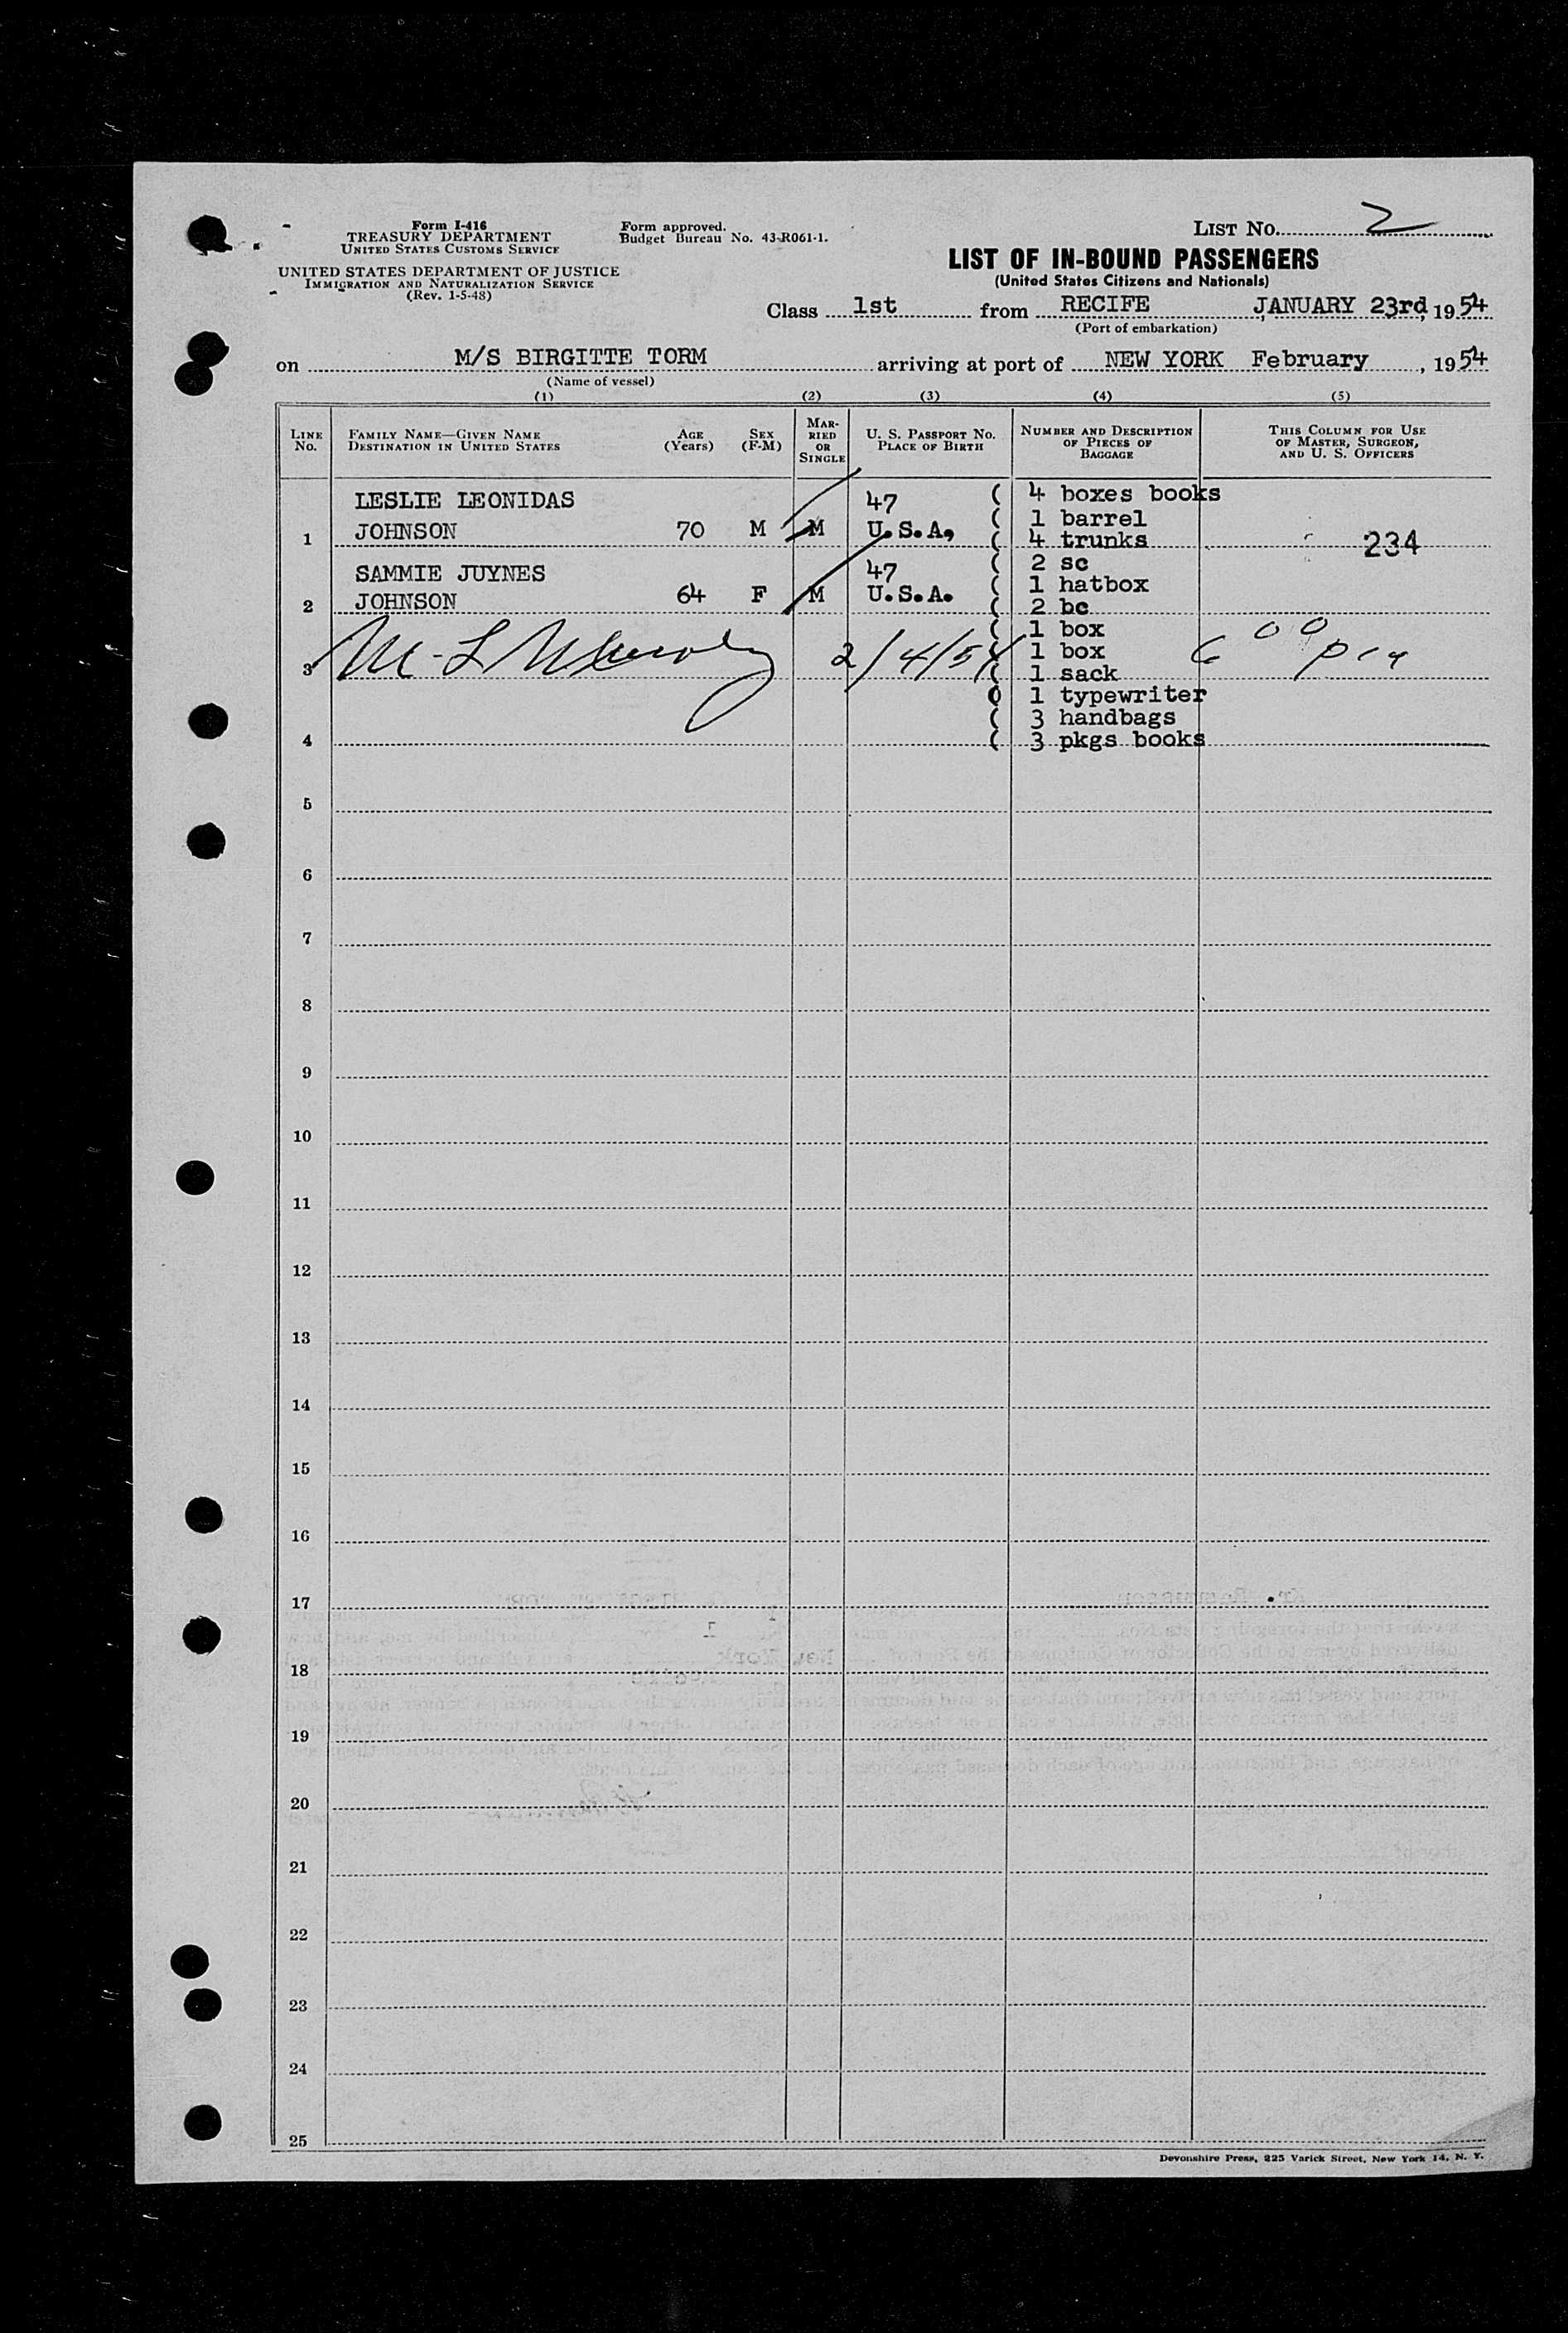 Form I-416
TREASURY DEPARTMENT
UNITED STATES CUSTOMS SERVICE
UNITED STATES DEPARTMENT OF JUSTICE
IMMIGRATION AND NATURALIZATION SERVICE
(Rev. 1-5-48)
Form approved.
Budget Bureau No. 43-R061-1.
LIST No. 2
LIST OF IN-BOUND PASSENGERS
(United States Citizens and Nationals)
Class 1st from RECIFE JANUARY 23rd, 1954
(Port of embarkation)
on M/S BIRGITTE TORM arriving at port of NEW YORK February, 1954
(Name of vessel)
(1) (2) (3) (4) (5)
LINE No.
FAMILY NAME—GIVEN NAME
DESTINATION IN UNITED STATES
AGE (Years)
SEX (F-M)
MARRIED OR SINGLE
U. S. PASSPORT No.
PLACE OF BIRTH
NUMBER AND DESCRIPTION OF PIECES OF BAGGAGE
THIS COLUMN FOR USE OF MASTER, SURGEON, AND U. S. OFFICERS
LESLIE LEONIDAS 47 ( 4 boxes books
( 1 barrel
1 JOHNSON 70 M M U.S.A, ( 4 trunks 234
SAMMIE JUYNES 47 ( 2 sc
( 1 hatbox
2 JOHNSON 64 F M U.S.A. ( 2 bc
( 1 box
2/4/54 ( 1 box 6 00
3 ( 1 sack
( 1 typewriter
( 3 handbags
4 ( 3 pkgs books
5
6
7
8
9
10
11
12
13
14
15
16
17
18
19
20
21
22
23
24
25
Devonshire Press, 225 Varick Street, New York 14, N. Y.